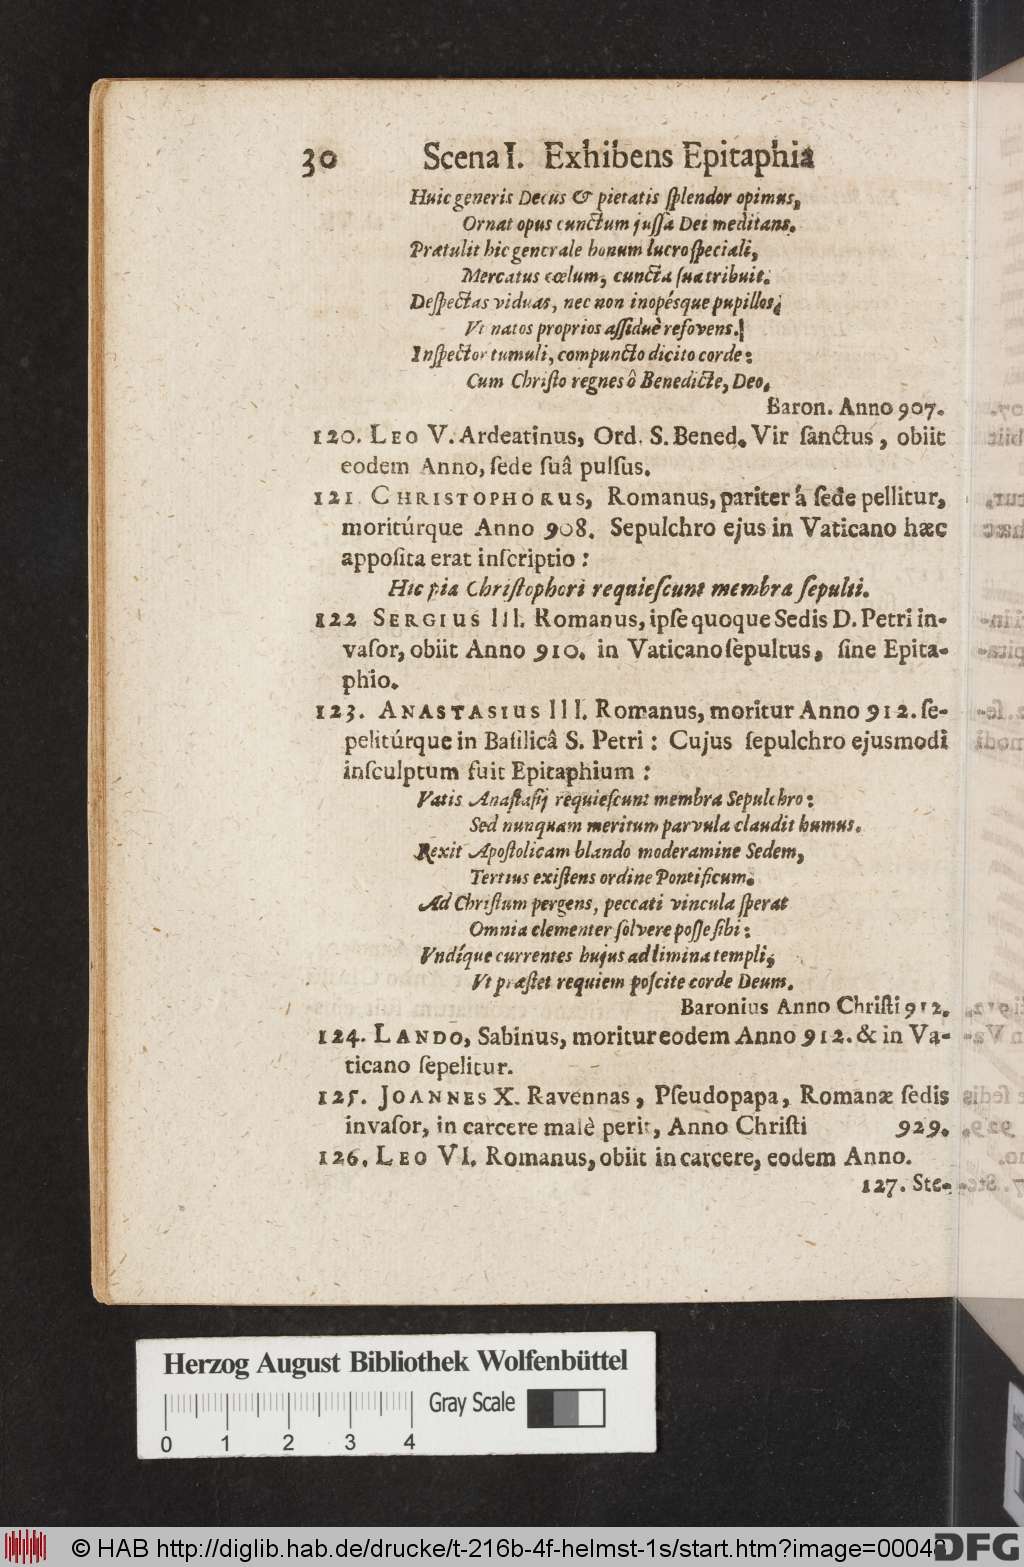 30 Scena I. Exhibens Epitaphia
Huic generis Decus & pietatis ſplendor opimus,
Ornat opus cunctum juſſa Dei meditans.
Prætulit hic generale bonum lucro ſpeciali,
Mercatus cœlum, cuncta ſua tribuit.
Deſpectas viduas, nec non inopésque pupillos,
Vt natos proprios aſſiduè refovens.
Inſpector tumuli, compuncto dicito corde:
Cum Chriſto regnes ô Benedicte, Deo.
Baron. Anno 907.
120. LEO V. Ardeatinus, Ord. S. Bened. Vir ſanctus, obiit
eodem Anno, ſede ſuâ pulſus.
121 CHRISTOPHORUS, Romanus, pariter á ſede pellitur,
moritúrque Anno 908. Sepulchro ejus in Vaticano hæc
appoſita erat inſcriptio:
Hic pia Chriſtophori requieſcunt membra ſepulti.
122 SERGIUS III. Romanus, ipſe quoque Sedis D. Petri in-
vaſor, obiit Anno 910. in Vaticano ſèpultus, ſine Epita-
phio.
123. ANASTASIUS III. Romanus, moritur Anno 912. ſe-
pelitúrque in Baſilicâ S. Petri: Cujus ſepulchro ejusmodi
inſculptum fuit Epitaphium:
Vatis Anaſtaſij requieſcunt membra Sepulchro:
Sed nunquam meritum parvula claudit humus.
Rexit Apoſtolicam blando moderamine Sedem,
Tertius exiſtens ordine Pontificum.
Ad Chriſtum pergens, peccati vincula ſperat
Omnia clementer ſolvere poſſe ſibi:
Vndíque currentes hujus ad limina templi,
Vt præſtet requiem poſcite corde Deum.
Baronius Anno Chriſti 912.
124. LANDO, Sabinus, moritur eodem Anno 912. & in Va-
ticano ſepelitur.
125. JOANNES X. Ravennas, Pſeudopapa, Romanæ ſedis
invaſor, in carcere malè perit, Anno Chriſti 929.
126. LEO VI. Romanus, obiit in carcere, eodem Anno.
127. Ste-
Herzog August Bibliothek Wolfenbüttel
Gray Scale
0 1 2 3 4
© HAB http://diglib.hab.de/drucke/t-216b-4f-helmst-1s/start.htm?image=00048
DFG